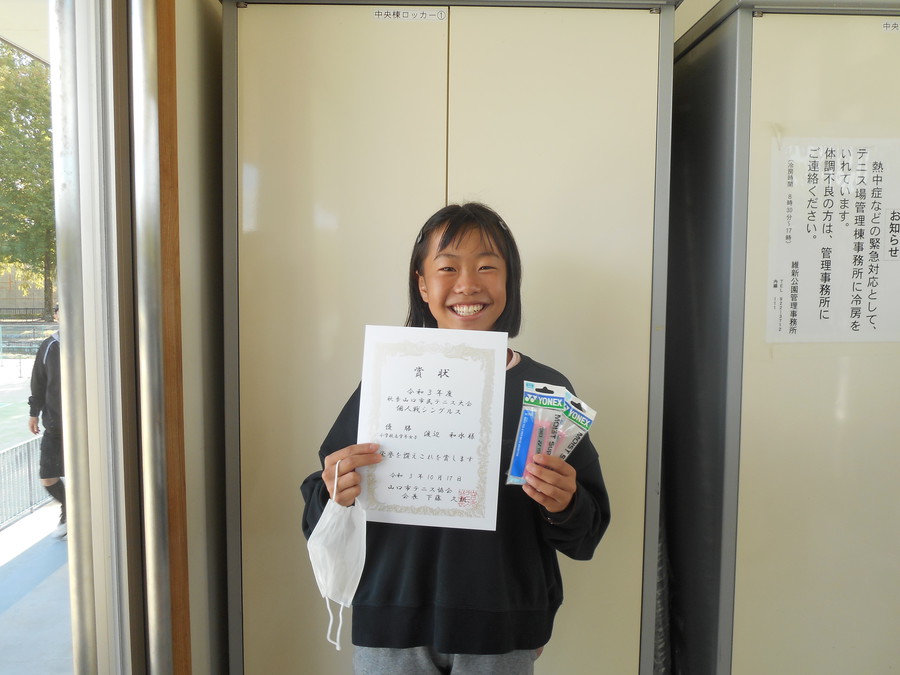 中央棟ロッカー①
中央
お知らせ
熱中症などの緊急対応として、
テニス場管理棟事務所に冷房を
いれています。
体調不良の方は、管理事務所に
ご連絡ください。
8時30分～17時
維新公園管理事務所
賞状
令和3年度
秋季山口市民テニス大会
個人戦シングルス
優勝
渡辺 和水様
栄誉を讃えこれを賞します
令和3年10月17日
山口市テニス協会
会長 下藤
YONEX
MOIST Super
YONEX
MOIST